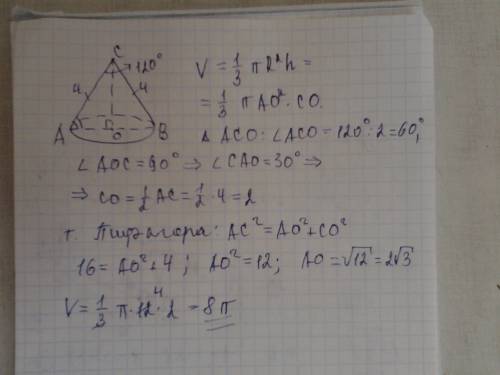 C
120°
4
4
A
O
B
V = 1/3 πR²h =
= 1/3 π AO² · CO.
△ ACO: ∠ACO = 120° : 2 = 60°,
∠AOC = 90° ⇒ ∠CAO = 30° ⇒
⇒ CO = 1/2 AC = 1/2 · 4 = 2
т. Пифагора: AC² = AO² + CO²
16 = AO² + 4 ; AO² = 12 ; AO = √12 = 2√3
V = 1/3 π · 12 4 · 2 = 8π